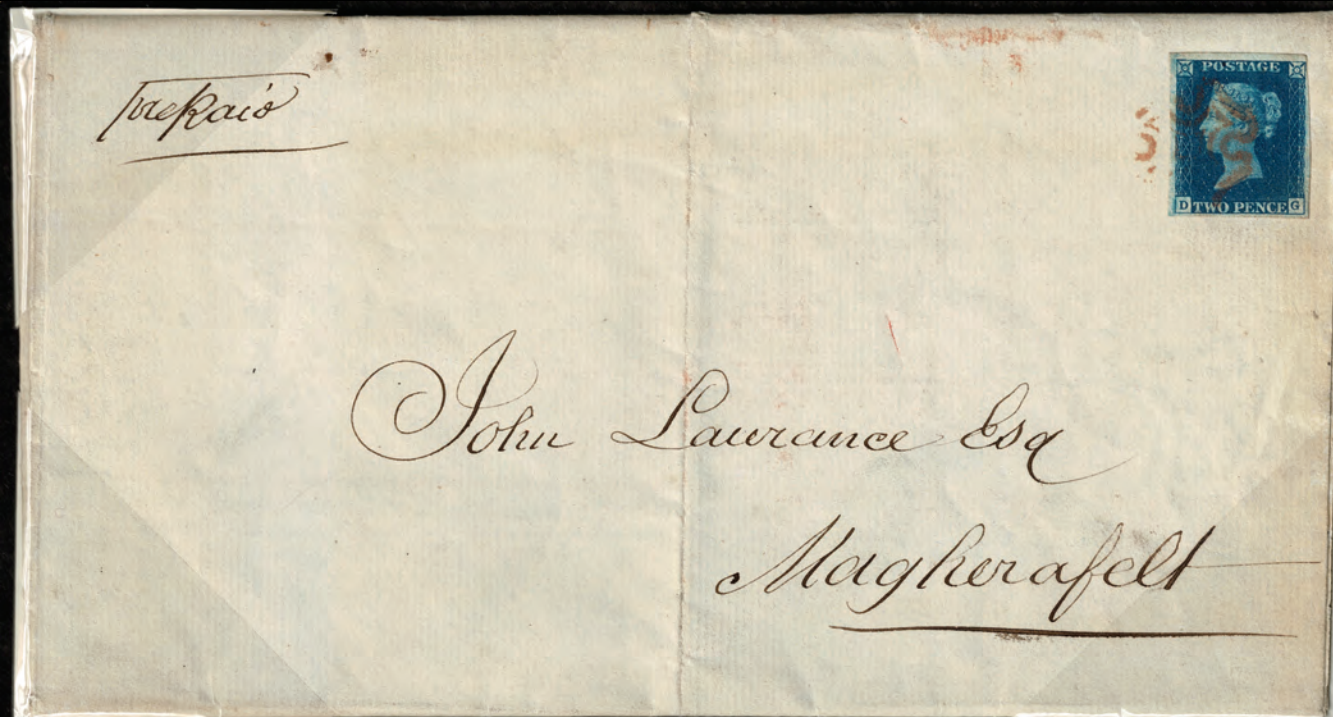 Prepaid
POSTAGE
D TWO PENCE G
John Lawrance Esq
Magherafelt